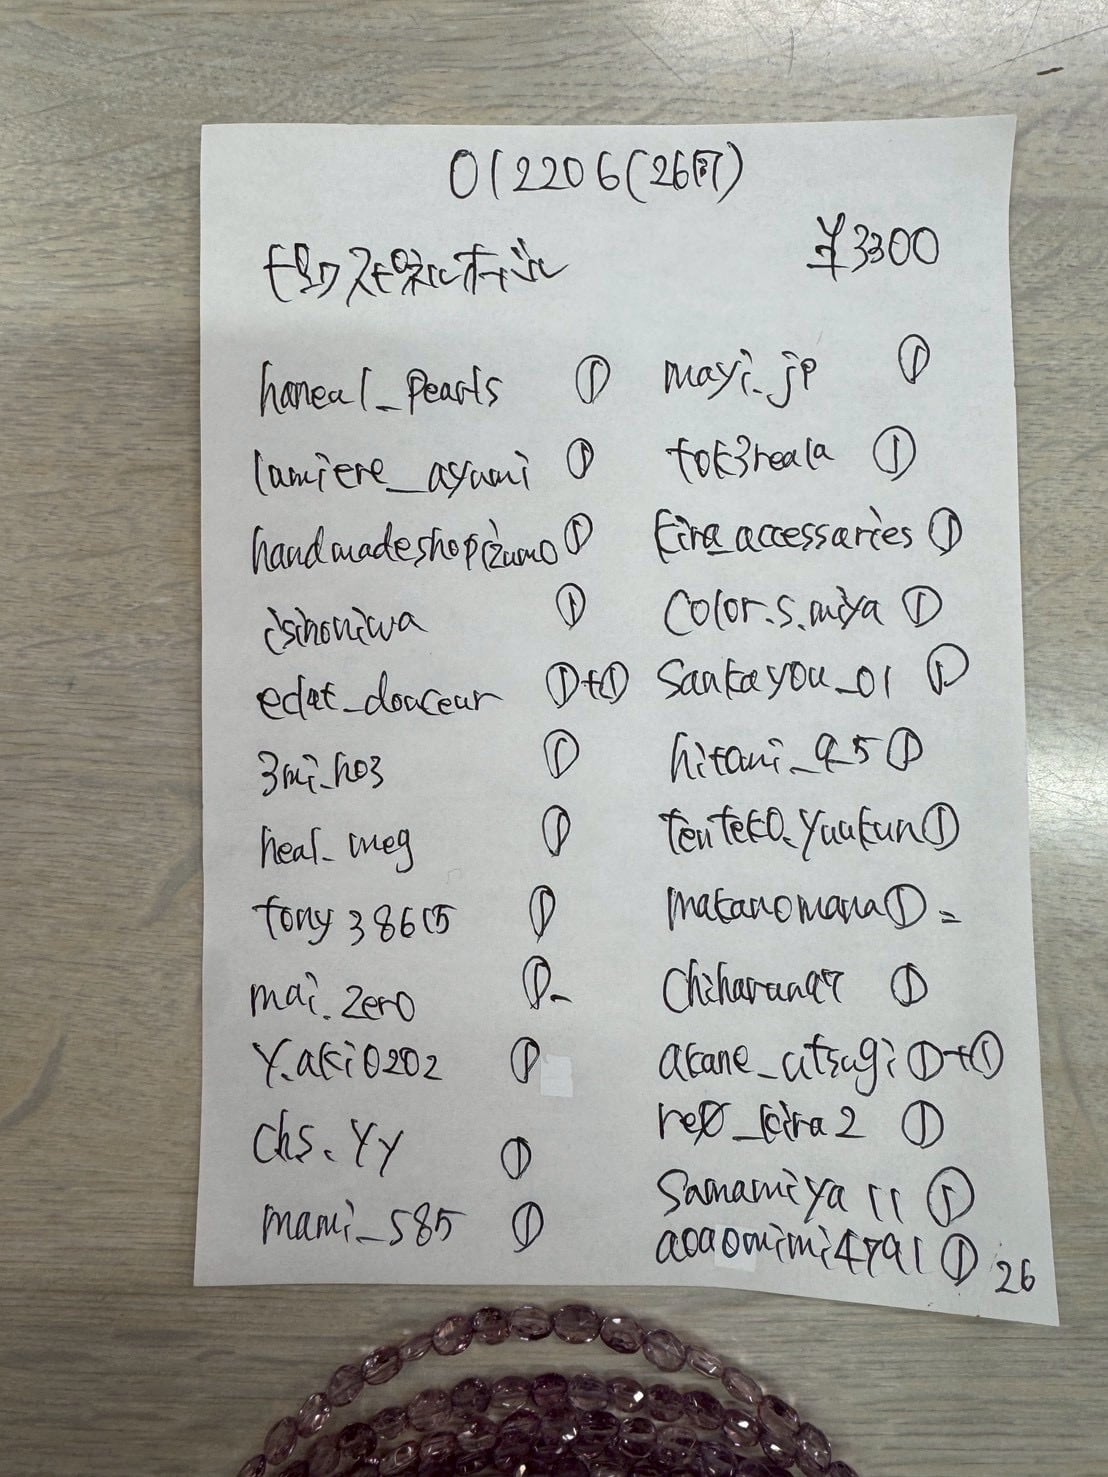 012206(26周)
¥3300
honeal_pearls ① 
lumiere_ayumi ①
handmadeshopizumo ①
isinoniwa ①
eclat_douceur ①+①
3mi_ho3 ①
heal_meg ①
tony38615 ①
mai.zero ①-
y.aki0202 ①
chs.yy ①
mami_585 ①
mayi.jp ①
tok3reala ①
kira_accessaries ①
color.s.miya ①
sankayou_01 ①
hitomi_95 ①
tenteko.yuukun ①
makanomana ① =
chiharun97 ①
akane_utsugi ①+①
re0_kira2 ①
samamiya11 ①
aoaomimi4791 ①
26